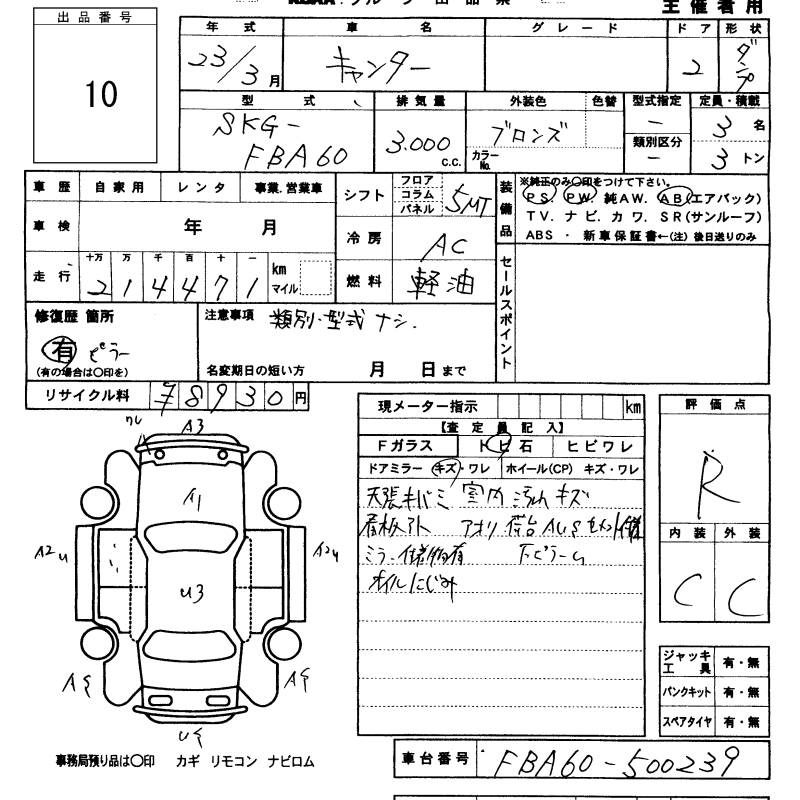 主催者用
出品番号
10
年式 車名 グレード ドア 形状
23/3月 キャンター 2 ダンプ
型式 排気量 外装色 色替 型式指定 定員・積載
SKG-
FBA60
3.000 c.c.
ブロンズ
カラーNo.
ー
類別区分
ー
3名
3トン
車歴 自家用 レンタ 事業.営業車
車検 年 月
走行 十万 万 千 百 十 一
214471 km マイル
シフト フロア コラム パネル 5MT
冷房 AC
燃料 軽油
装備品
※純正のみ〇印をつけて下さい。
PS. PW. 純AW. AB(エアバック)
TV. ナビ. カワ. SR(サンルーフ)
ABS ・ 新車保証書←(注) 後日送りのみ
セールスポイント
修復歴 箇所
有 ピラー
(有の場合は〇印を)
注意事項 類別・型式ナシ.
名変期日の短い方 月 日まで
リサイクル料 ¥8930円
現メーター指示 km
【査定員記入】
Fガラス トビ石 ヒビワレ
ドアミラー キズ・ワレ ホイール(CP) キズ・ワレ
天張キバミ 室内汚れ キズ
看板アト アオリ 荷台AUS
ミラー
オイルにじみ
評価点
R
内装 外装
C C
ワレ
A3
A1
A2U
U3
ジャッキ工具 有・無
パンクキット 有・無
スペアタイヤ 有・無
事務局預り品は〇印 カギ リモコン ナビロム
車台番号 FBA60-500239